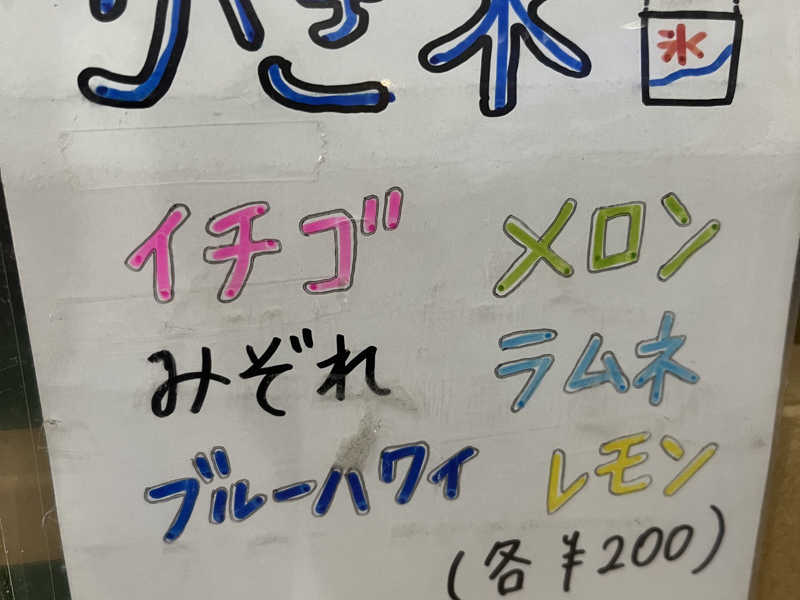 かき氷 氷
イチゴ メロン
みぞれ ラムネ
ブルーハワイ レモン
(各¥200)